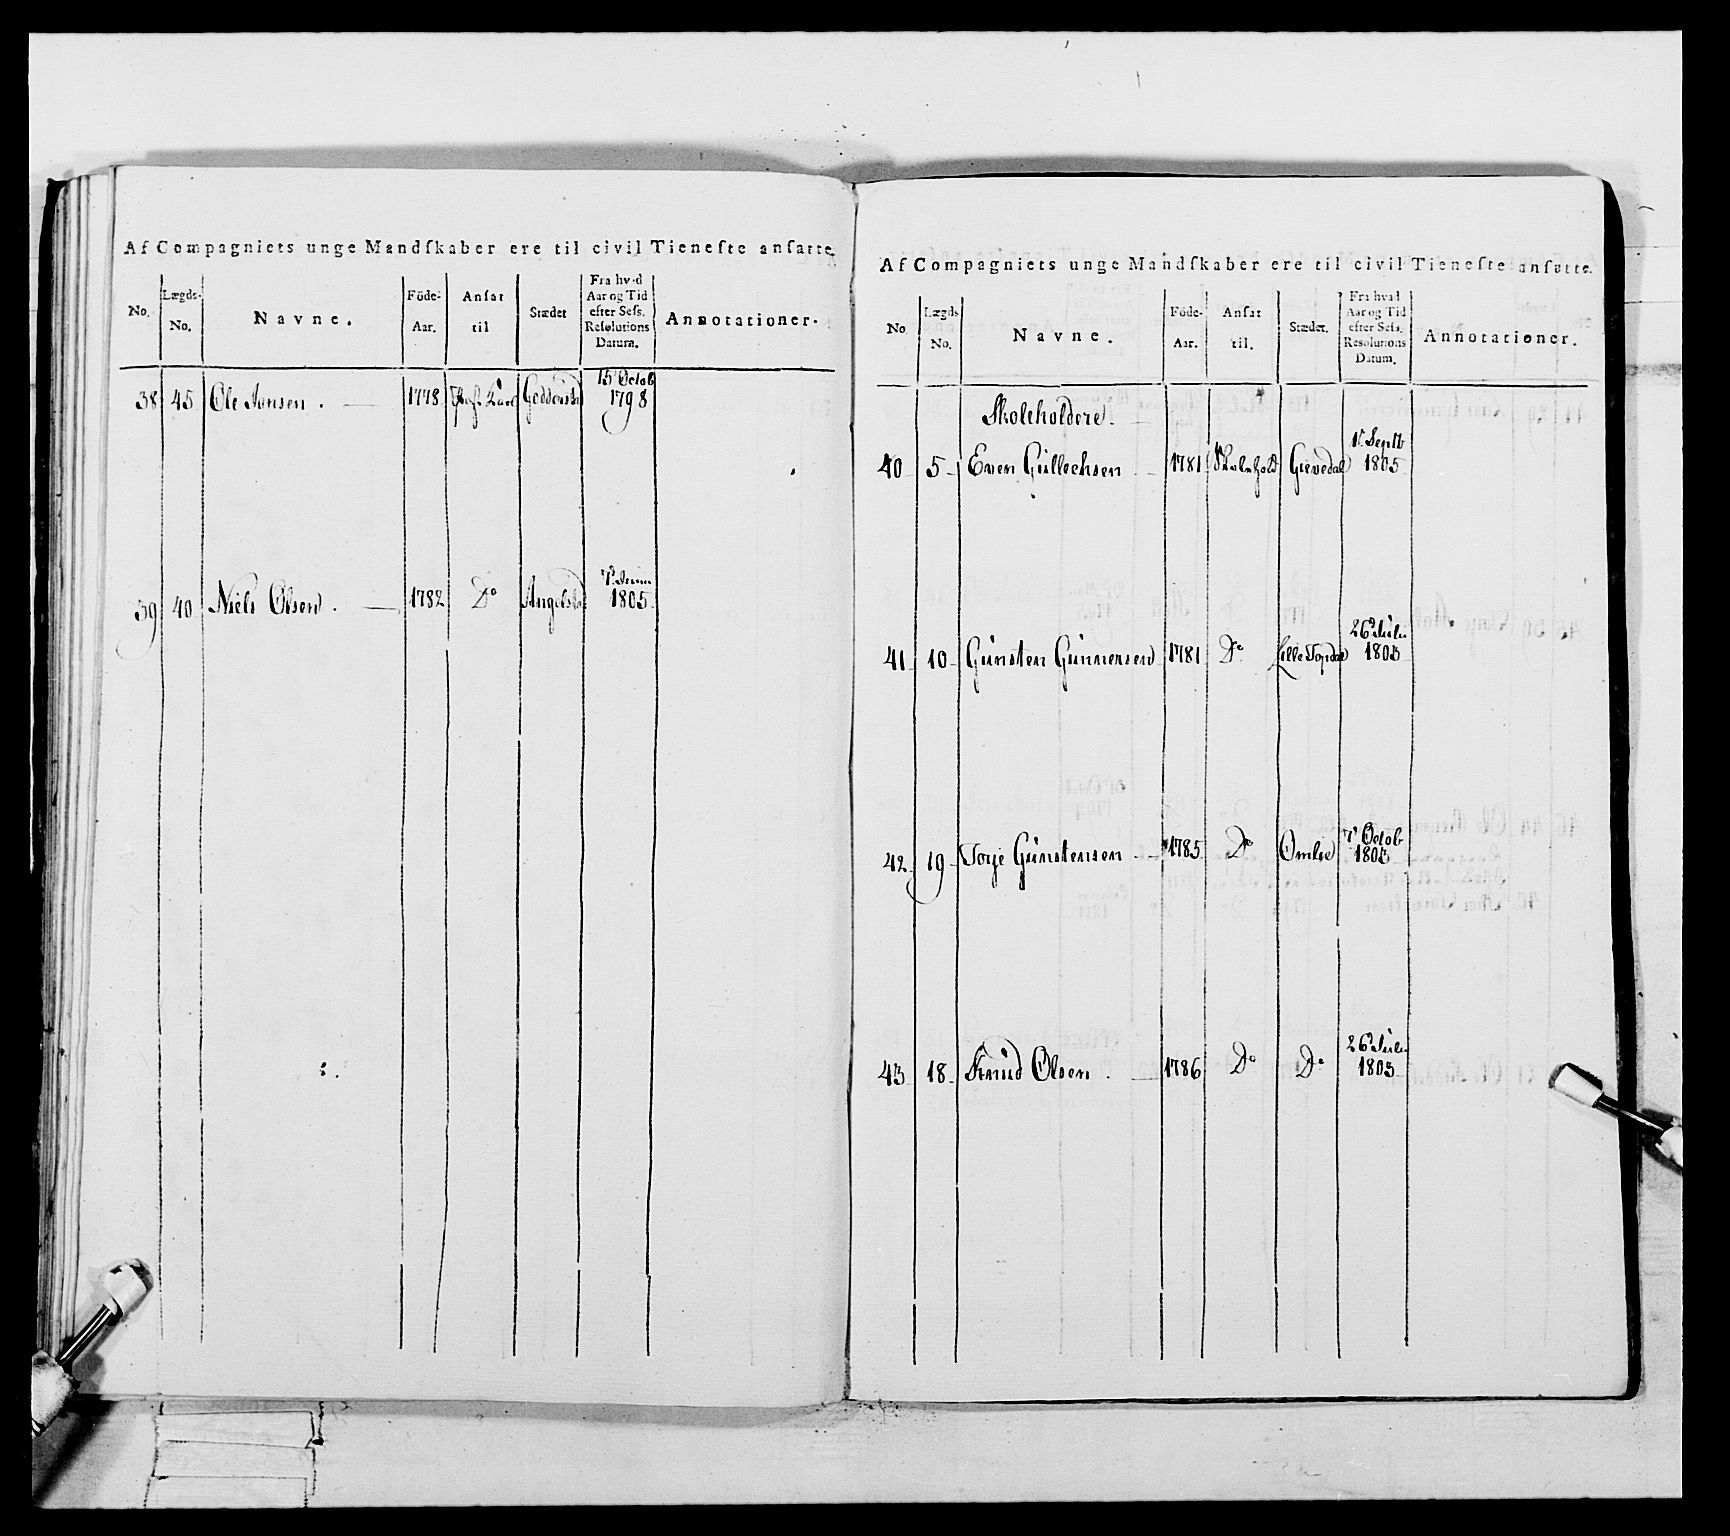 Af Compagniets unge Mandſkaber ere til civil Tieneſte anſatte.
No. Lægds-No. Navne. Föde-Aar. Anſat til Stædet Fra hvad Aar og Tid efter Seſs. Reſolutions Datum. Annotationer.
15 Octob
38 45 Ole Jonsen. 1778 1798
7de Junii
39 40 Niels Olsen. 1782 Do 1805.
Af Compagniets unge Mandſkaber ere til civil Tieneſte anſatte.
No. Lægds No. Navne. Föde-Aar. Anſat til. Stædet. Fra hvad Aar og Tid efter Seſs. Reſolutions Datum. Annotationer.
Skoleholdere.
1t Septb
40 5 Even Gullechsen 1781 Skolehold Giøvedal 1805
26de Julii
41 10 Gunsten Gunnersen 1781 Do Lille Topdal 1803
7de Octob
42 19 Torje Gunstensen 1785 Do Omlie 1803
26de Julii
43 18 Knud Olsen. 1786 Do Do 1803